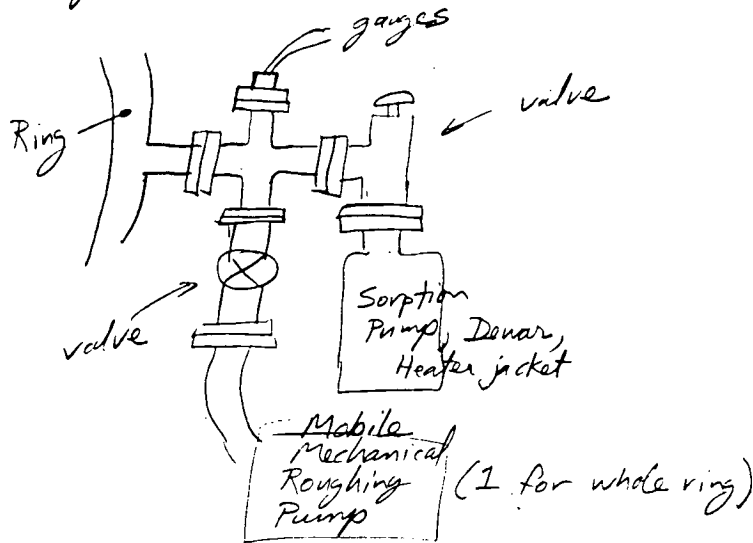 gauges
valve
Ring
valve
Sorption
Pump, Dewar,
Heater jacket
Mobile
Mechanical
Roughing
Pump
(1 for whole ring)